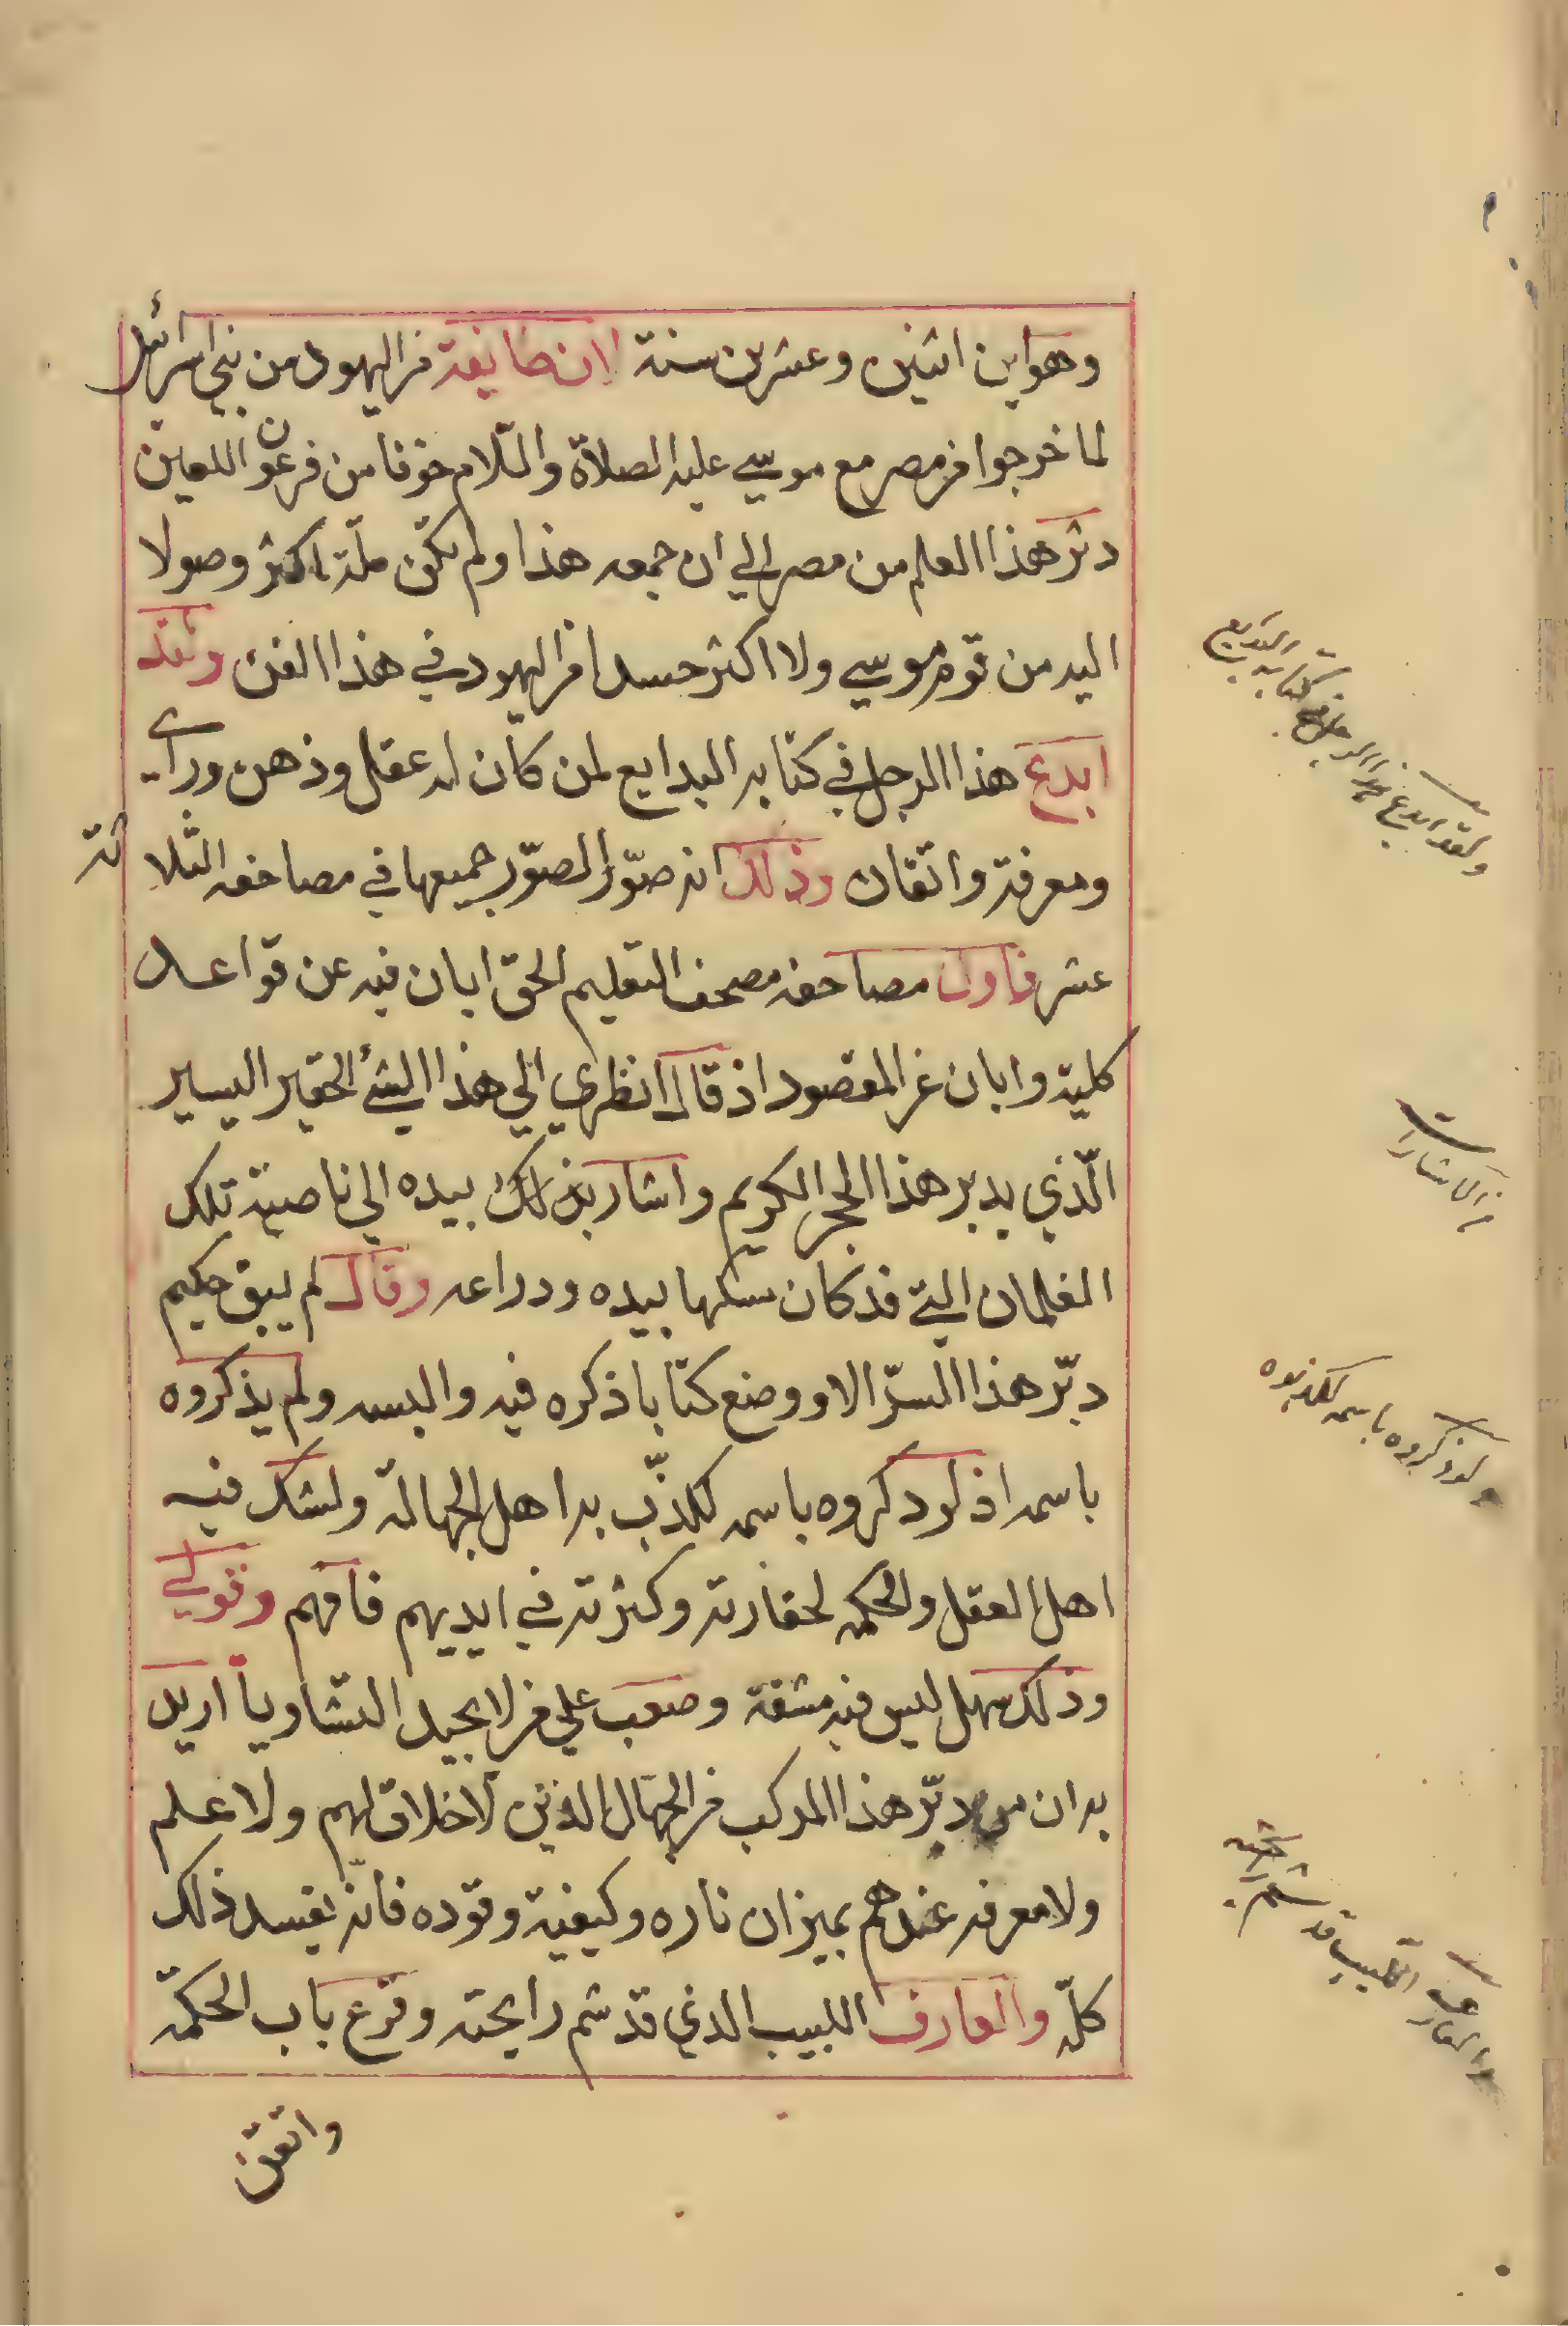 وهو ابن اثنين وعشرين سنة لان طايفة من اليهود من بني اسرائيل
لما خرجوا من مصر مع موسي عليه الصلاة والسلام خوفا من فرعون اللعين
دثر هذا العلم من مصر الي ان جمعه هذا ولم تكن ملة اكثر وصولا
اليه من قوم موسي ولا اكثر حسدا من اليهود في هذا الفن ولقد
ابدع هذا الرجل في كتابه البدايع لمن كان له عقل وذهن وراي
ومعرفة واتقان وذلك انه صوّر الصوّر جميعها في مصاحفه الثلاثة
عشر فاول مصاحفه مصحف التعليم الحق ابان فيه عن قواعد
كلية وابان عن المقصود اذ قال انظري الي هذا الشئ الحقير اليسير
الّذي يدبر هذا الحجر الكريم واشار بذلك بيده الي ناصية تلك
الغلمان التي قد كان مسكها بيده ودراعه وقال لم يبق حكيم
دبّر هذا السرّ الا ووضع كتابا ذكره فيه والبسه ولم يذكروه
باسمه اذ لو ذكروه باسمه لكذّب به اهل الجهالة ولشك فيه
اهل العقل والحكمه لحقارته وكثرته في ايديهم فافهم وقولي
وذلك سهل ليس فيه مشقة وصعب علي من لا يجيد التشاويا اريد
به ان من دبّر هذا المركب من الجهال الذين لا خلاق لهم ولا علم
ولا معرفه عندهم بميزان ناره وكيفية وقوده فانه يفسد ذلك
كلّه والعارف اللبيب الذي قد شم رايحته وقرع باب الحكمة
واتقن
ولقد ابدع هذا الرجل في كتابه البديع
ولو ذكروه باسمه لكذبوه
والعارف اللبيب قد شم رايحته